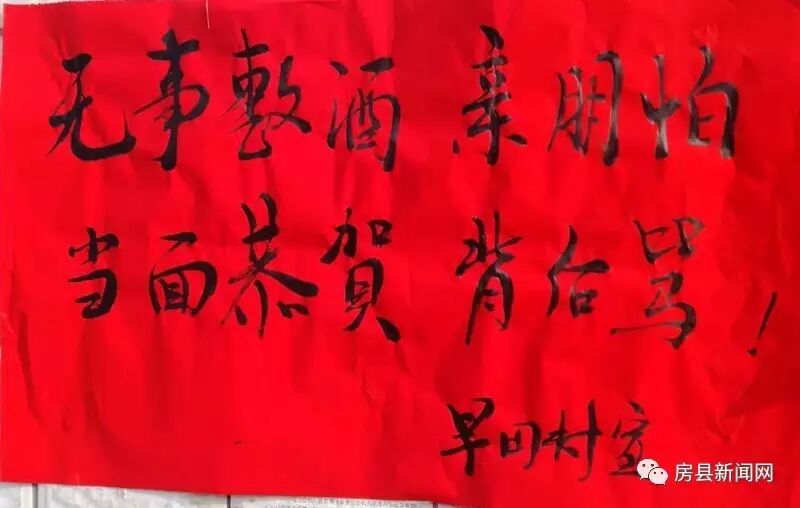 无事整酒 亲朋怕
当面恭賀 背后骂!
旱田村宣
房县新闻网